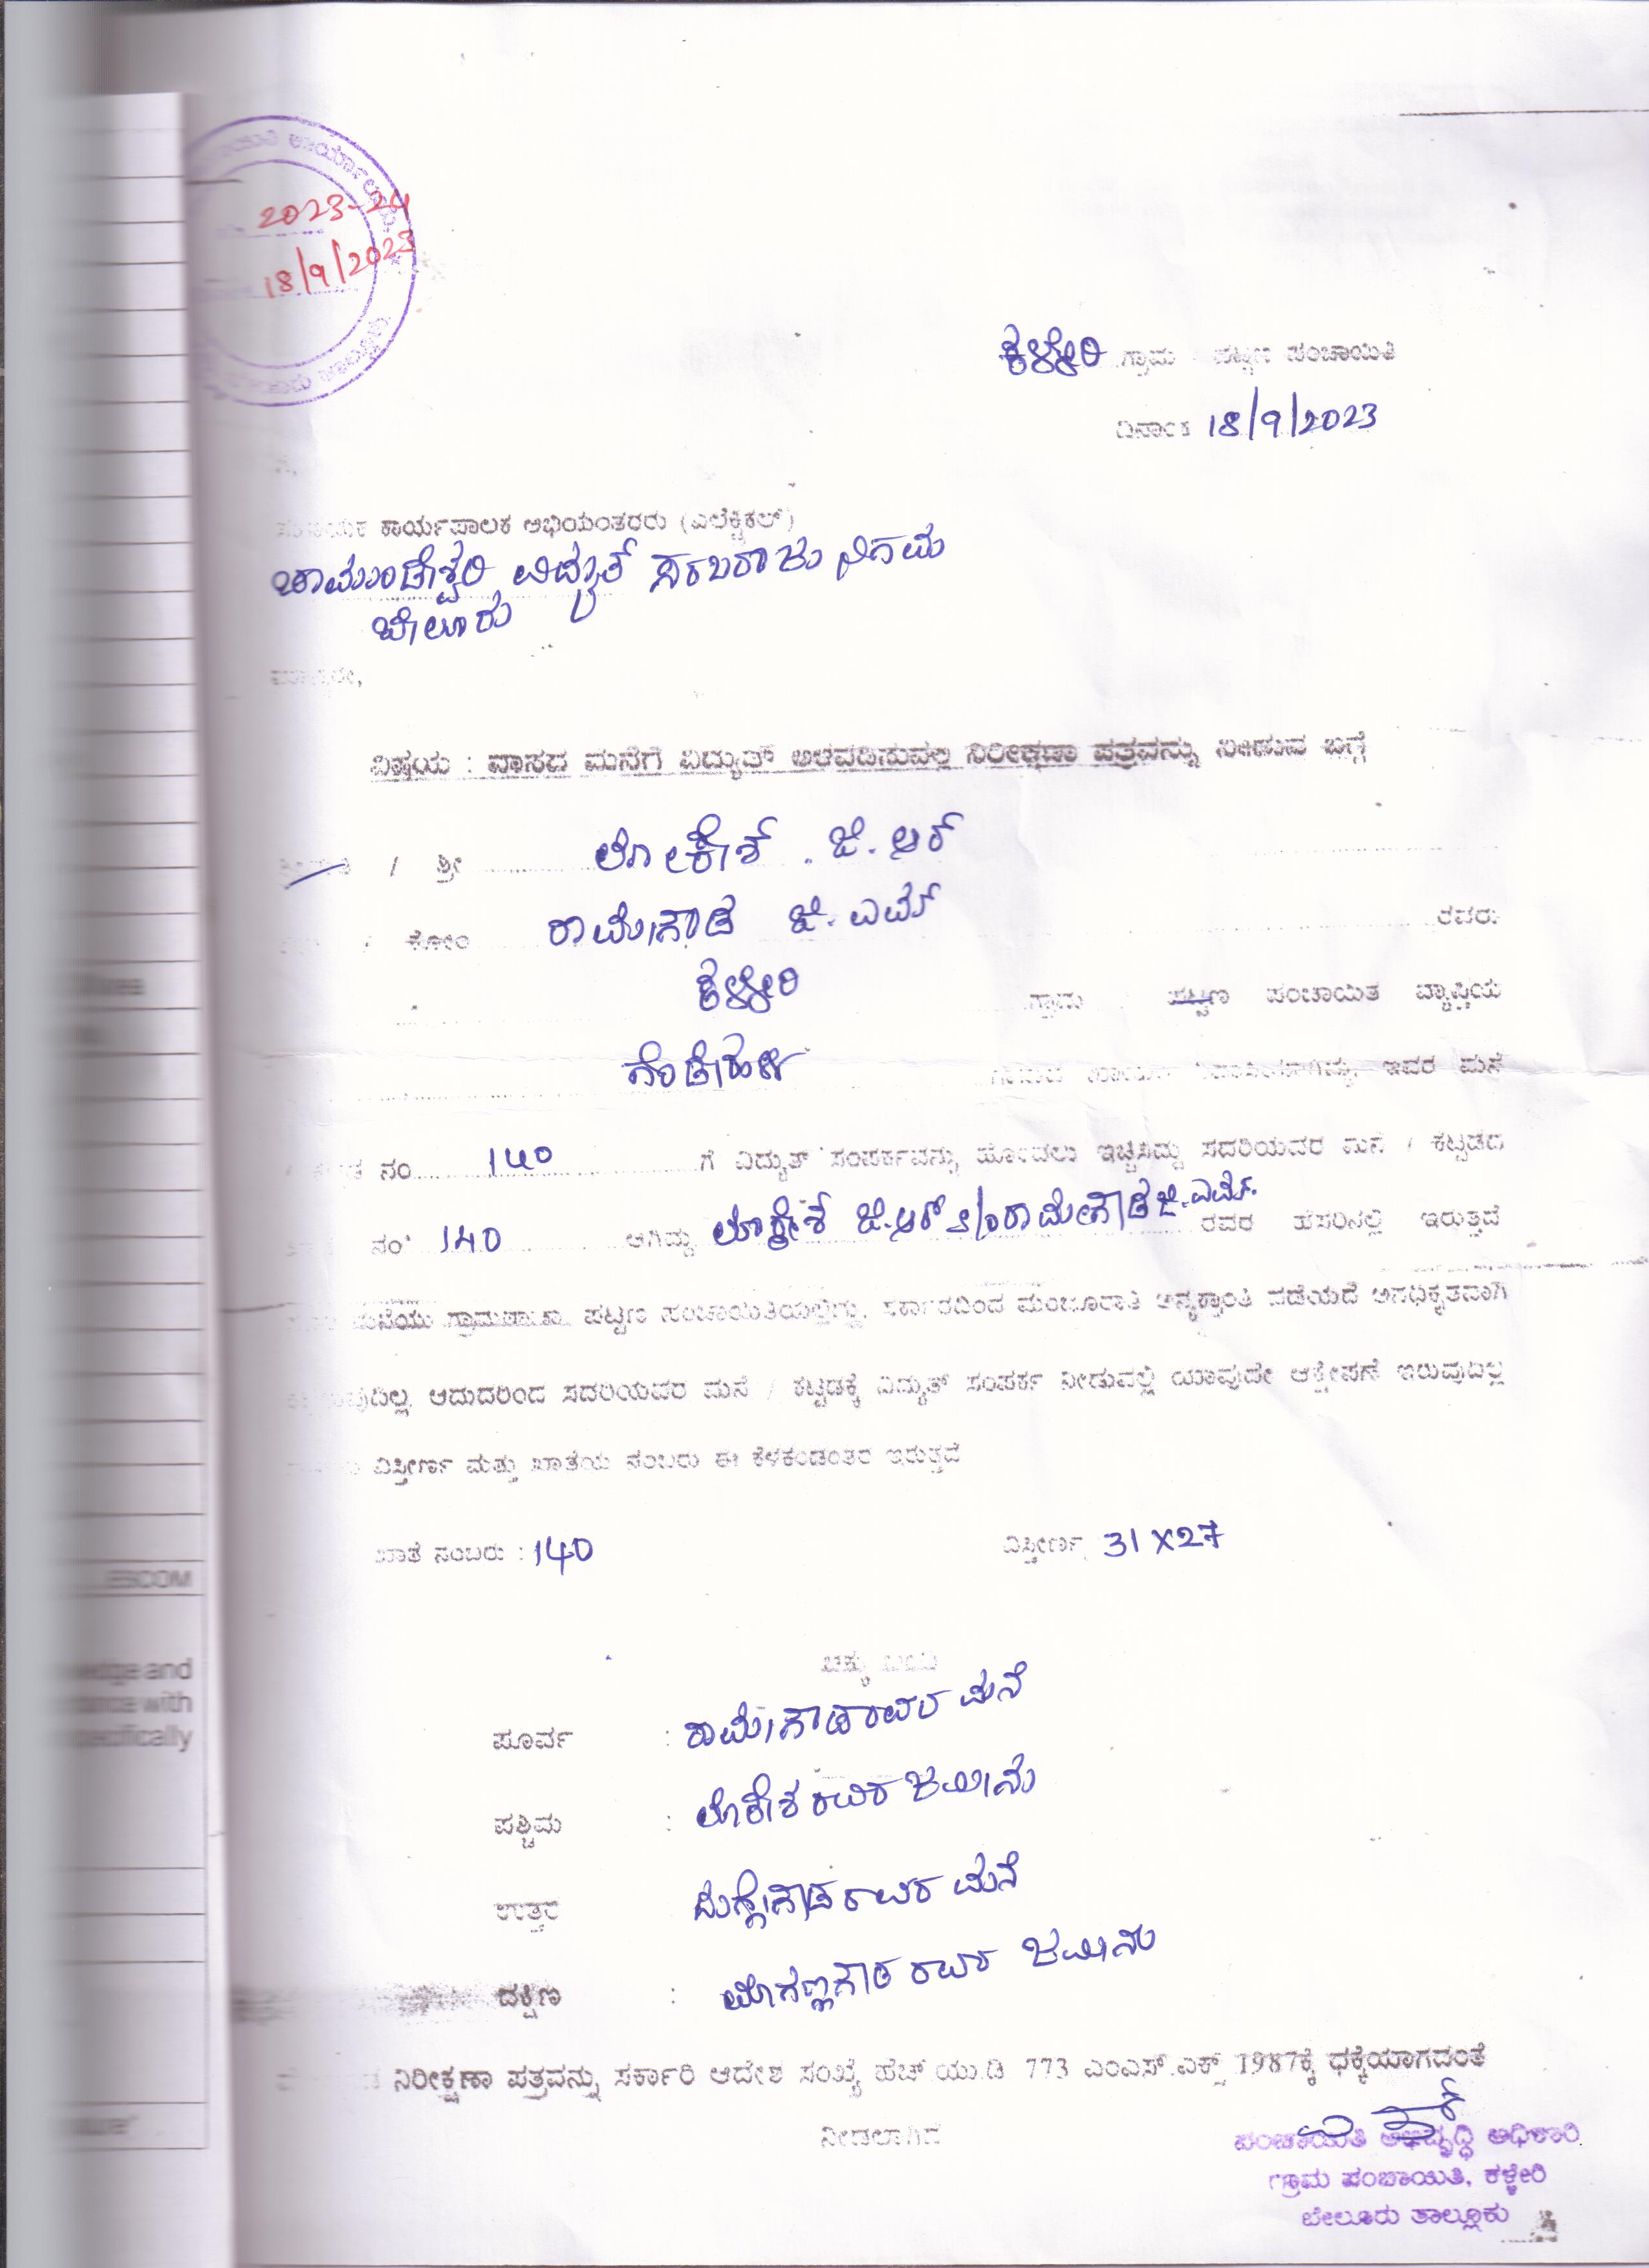 2023-24
18/9/2023
ಕಳ್ಳೇರಿ ಗ್ರಾಮ ಪಟ್ಟಣ ಪಂಚಾಯಿತಿ
ದಿನಾಂಕ 18/9/2023
ಕಾರ್ಯಪಾಲಕ ಅಭಿಯಂತರರು (ಎಲೆಕ್ಟ್ರಿಕಲ್)
ಚಾಮುಂಡೇಶ್ವರಿ ವಿದ್ಯುತ್ ಸರಬರಾಜು ನಿಗಮ
ಬೇಲೂರು
ಮಾನ್ಯರೇ,
ವಿಷಯ : ವಾಸದ ಮನೆಗೆ ವಿದ್ಯುತ್ ಅಳವಡಿಸುವಲ್ಲಿ ನಿರೀಕ್ಷಣಾ ಪತ್ರವನ್ನು ನೀಡುವ ಬಗ್ಗೆ
/ ಶ್ರೀ ಲೋಕೇಶ್ . ಜಿ. ಆರ್
/ ಕೋಂ ರಾಮೇಗೌಡ ಜಿ. ಎಮ್ ರವರು
ಕಳ್ಳೇರಿ ಗ್ರಾಮ ಪಟ್ಟಣ ಪಂಚಾಯಿತ ವ್ಯಾಪ್ತಿಯ
ಗೆಂಡೇಹಳ್ಳಿ ಇವರ ಮನೆ
ನಂ 140 ಗೆ ವಿದ್ಯುತ್ ಸಂಪರ್ಕವನ್ನು ಹೊಂದಲು ಇಚ್ಚಿಸಿದ್ದು ಸದರಿಯವರ ಮನೆ / ಕಟ್ಟಡದ
ನಂ 140 ಆಗಿದ್ದು ಲೋಕೇಶ್ ಜಿ.ಆರ್ S/o ರಾಮೇಗೌಡ ಜಿ.ಎಮ್. ರವರ ಹೆಸರಿನಲ್ಲಿ ಇರುತ್ತದೆ
ಮನೆಯು ಗ್ರಾಮಠಾಣಾ ಪಟ್ಟಣ ಪಂಚಾಯಿತಿಯಲ್ಲಿದ್ದು, ಸರ್ಕಾರದಿಂದ ಮಂಜೂರಾತಿ ಅನ್ಯಕ್ರಾಂತಿ ಪಡೆಯದೆ ಅನಧಿಕೃತವಾಗಿ
ಆದುದರಿಂದ ಸದರಿಯವರ ಮನೆ / ಕಟ್ಟಡಕ್ಕೆ ವಿದ್ಯುತ್ ಸಂಪರ್ಕ ನೀಡುವಲ್ಲಿ ಯಾವುದೇ ಆಕ್ಷೇಪಣೆ ಇರುವುದಿಲ್ಲ
ವಿಸ್ತೀರ್ಣ ಮತ್ತು ಖಾತೆಯ ನಂಬರು ಈ ಕೆಳಕಂಡಂತೆ ಇರುತ್ತದೆ
ಖಾತೆ ನಂಬರು : 140 ವಿಸ್ತೀರ್ಣ 31 X 27
ಚಕ್ಕು ಬಂದಿ
ಪೂರ್ವ : ರಾಮೇಗೌಡರವರ ಮನೆ
ಪಶ್ಚಿಮ : ಲೋಕೇಶ ರವರ ಜಮೀನು
ಉತ್ತರ ಮಲ್ಲೇಗೌಡ ರವರ ಮನೆ
ದಕ್ಷಿಣ : ಮೊಗಣ್ಣಗೌಡ ರವರ ಜಮೀನು
ನಿರೀಕ್ಷಣಾ ಪತ್ರವನ್ನು ಸರ್ಕಾರಿ ಆದೇಶ ಸಂಖ್ಯೆ ಹೆಚ್.ಯು.ಡಿ 773 ಎಂಎಸ್.ಎಕ್ಸ್ 1987ಕ್ಕೆ ಧಕ್ಕೆಯಾಗದಂತೆ
ನೀಡಲಾಗಿದೆ
ಪಂಚಾಯಿತಿ ಅಭಿವೃದ್ಧಿ ಅಧಿಕಾರಿ
ಗ್ರಾಮ ಪಂಚಾಯಿತಿ, ಕಳ್ಳೇರಿ
ಬೇಲೂರು ತಾಲ್ಲೂಕು